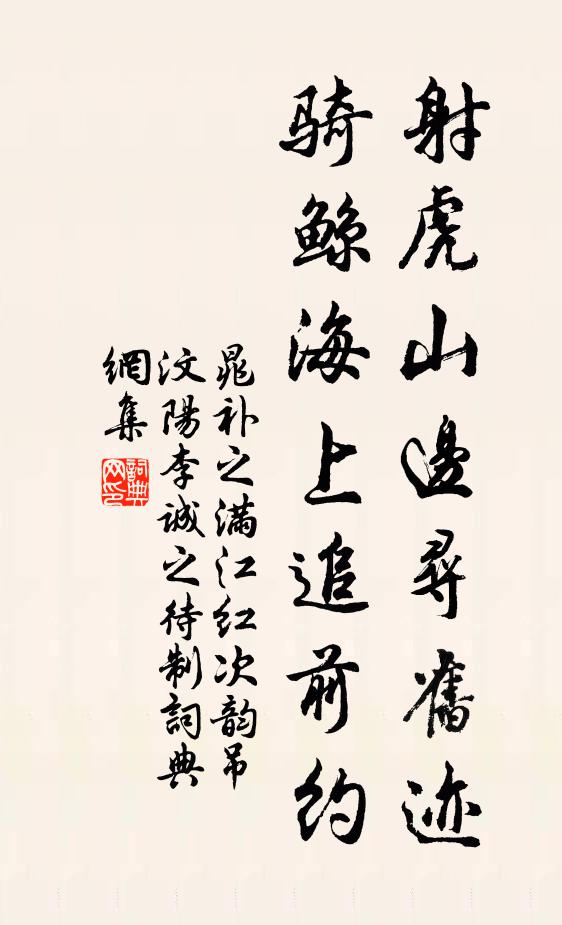 射虎山邊尋舊迹
骑鲸海上追前约
晁补之满江红次韵吊
汶陽李诚之待制詞典
網集
詞典网印